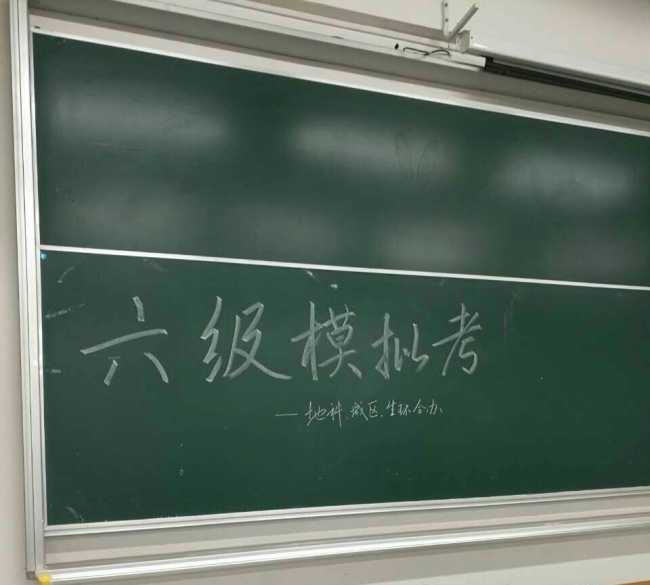 六级模拟考
——地科、城区、生环合办、